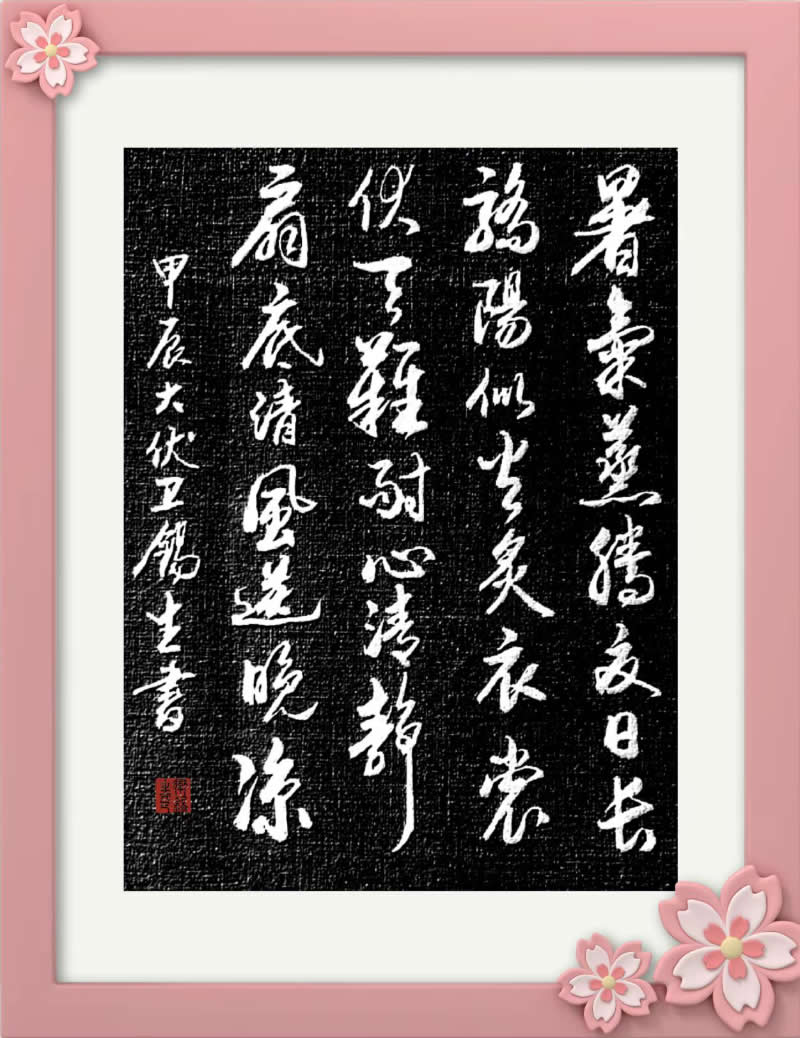 暑氣蒸腾夏日長
驕陽似火炙衣裳
伏天難耐心清静
扇底清風送晚凉
甲辰大伏卫锡生書